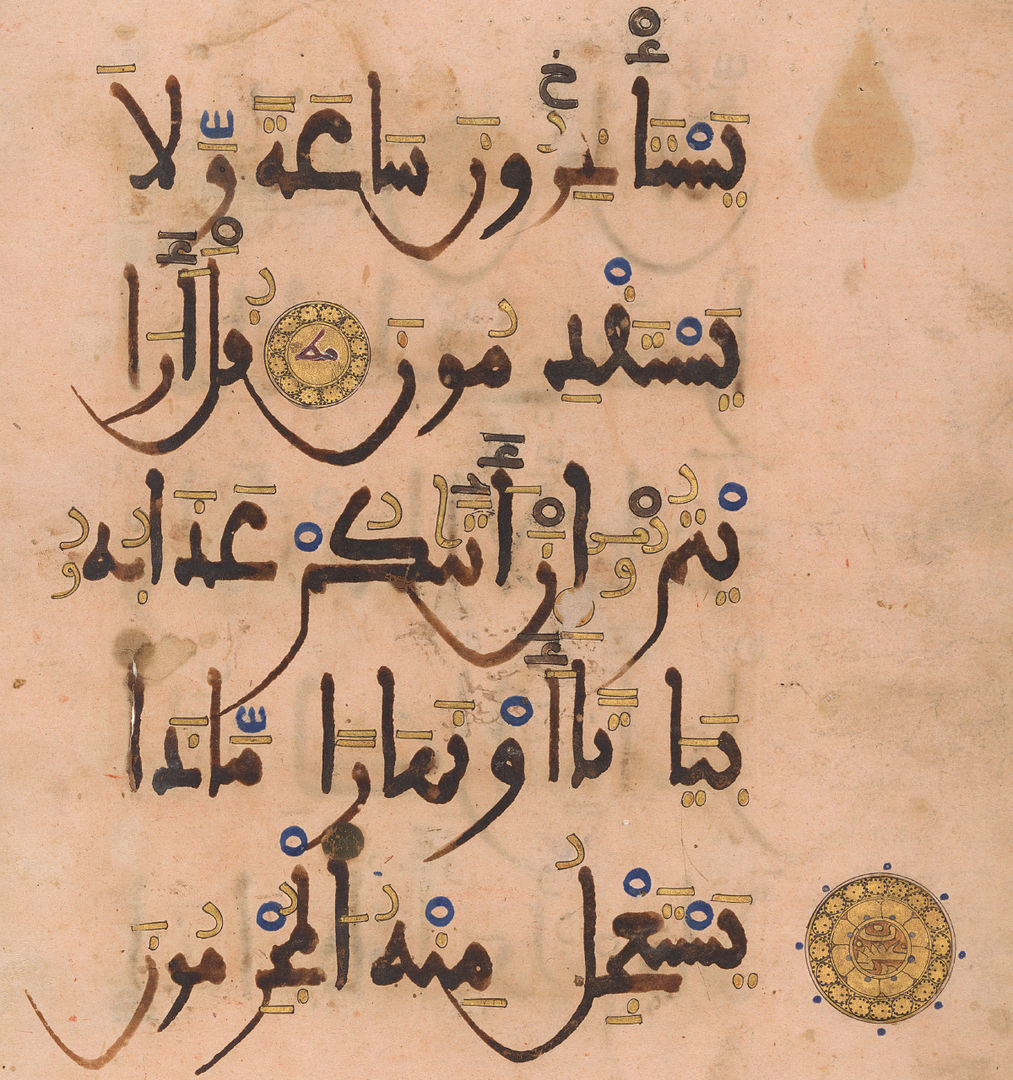 يَسْتَأْخِرُونَ سَاعَةً وَّلَا
يَسْتَقْدِمُونَ قُلْ أَرَا
يْتُمُ إِنْ أَتَاكُمْ عَذَابُهُ
بَيَاتًا أَوْ نَهَارًا مَّاذَا
يَسْتَعْجِلُ مِنْهُ الْمُجْرِمُونَ